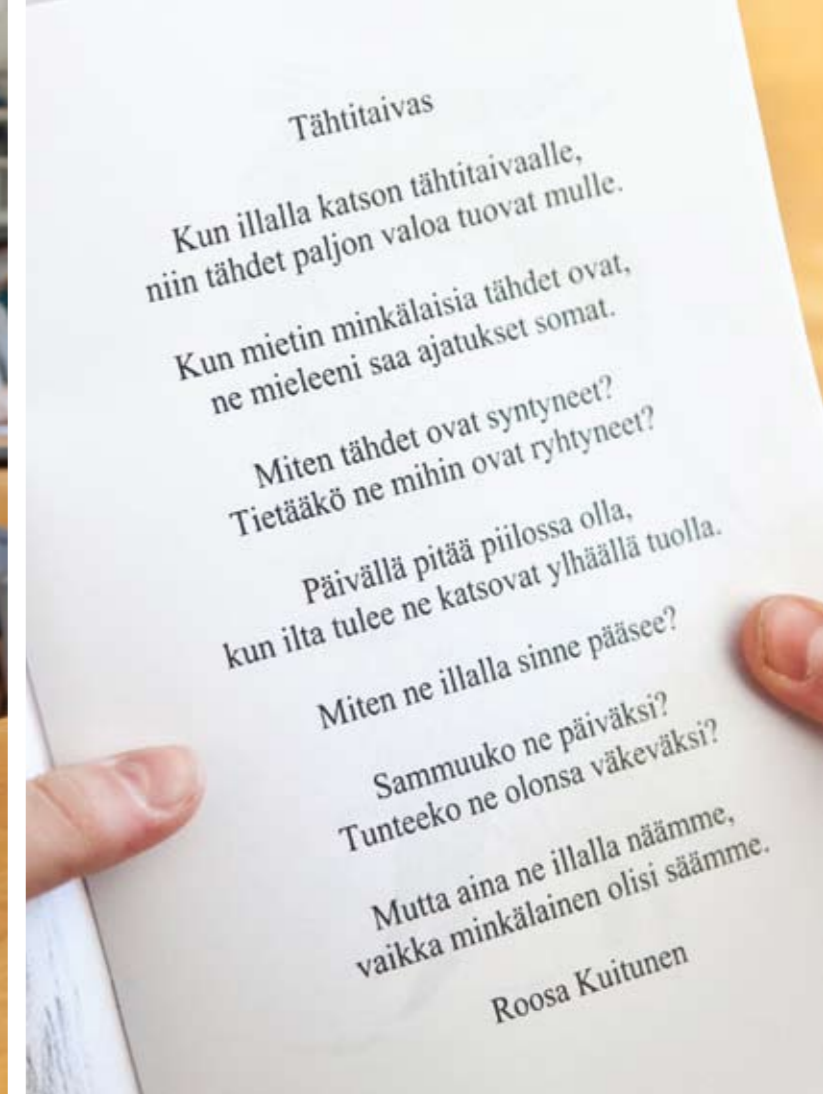 Tähtitaivas
Kun illalla katson tähtitaivaalle,
niin tähdet paljon valoa tuovat mulle.
Kun mietin minkälaisia tähdet ovat,
ne mieleeni saa ajatukset somat.
Miten tähdet ovat syntyneet?
Tietääkö ne mihin ovat ryhtyneet?
Päivällä pitää piilossa olla,
kun ilta tulee ne katsovat ylhäällä tuolla.
Miten ne illalla sinne pääsee?
Sammuuko ne päiväksi?
Tunteeko ne olonsa väkeväksi?
Mutta aina ne illalla näämme,
vaikka minkälainen olisi säämme.
Roosa Kuitunen